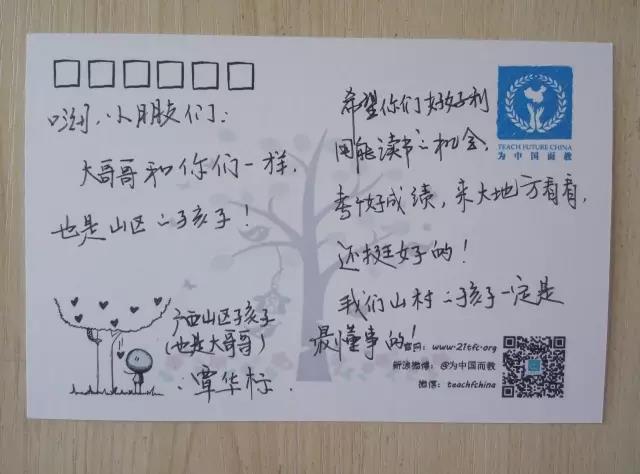 嗨,小朋友们:
大哥哥和你们一样,
也是山区之孩子!
希望你们好好利
用能读书之机会,
考个好成绩,来大地方看看,
还挺好的!
我们山村之孩子一定是
最懂事的!
广西山区孩子
(也是大哥哥)
覃华标.
TEACH FUTURE CHINA
为中国而教
官网:www.21tfc.org
新浪微博:@为中国而教
微信:teachfchina